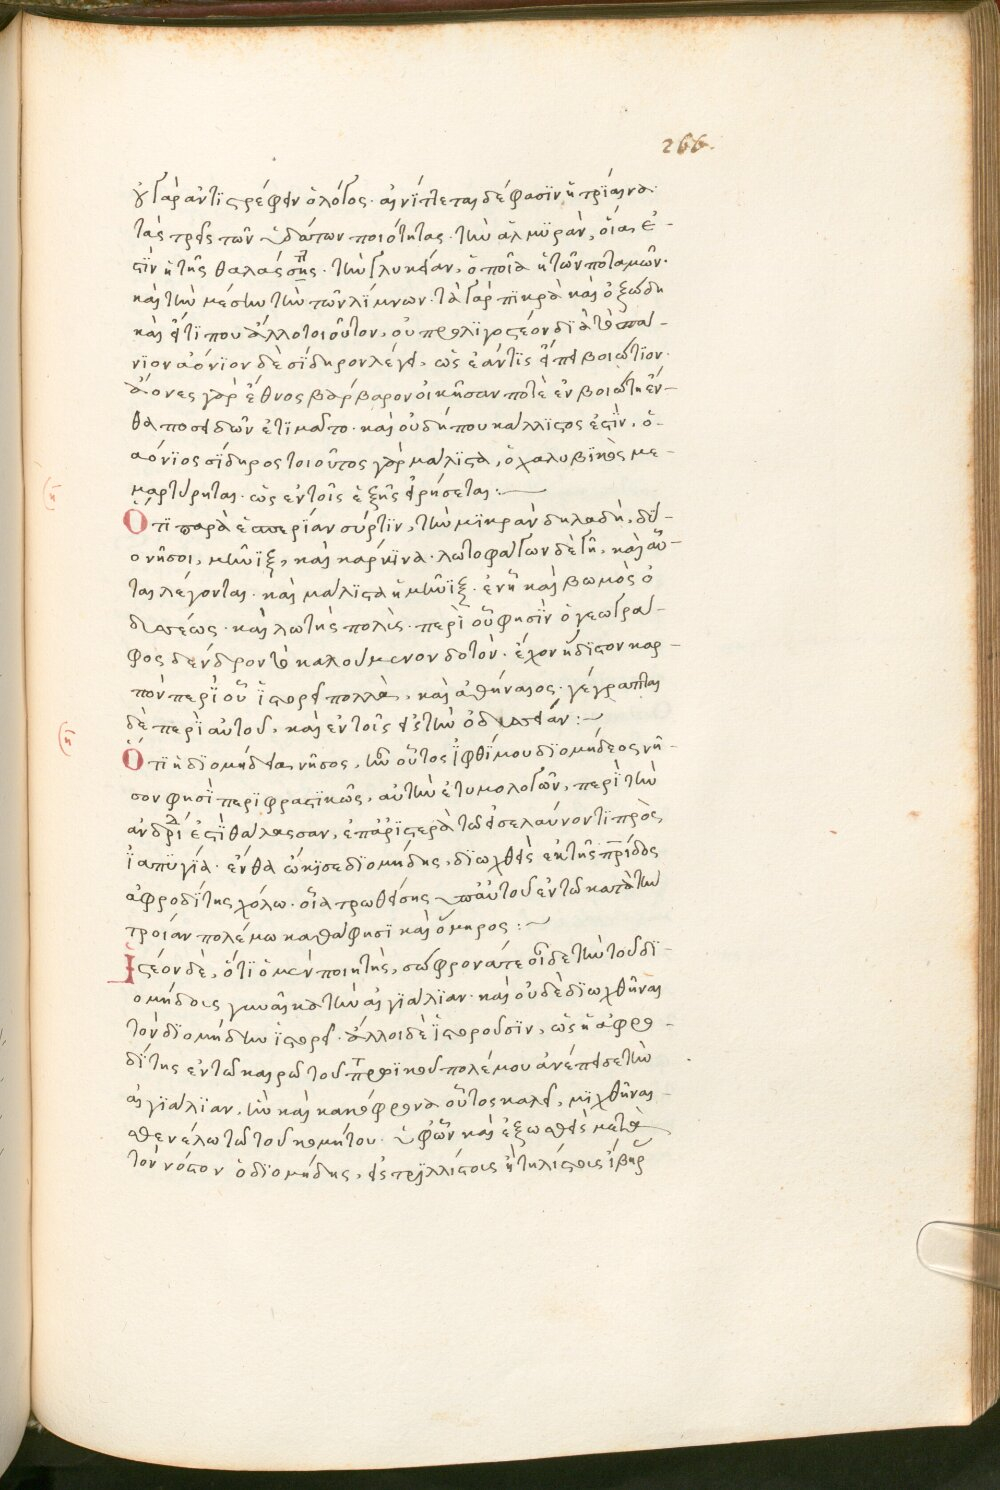 266
οὐ γὰρ ἀντιστρέφειν ὁ λόγος. αἰνίττεται δέ φασιν ἡ τρίαινα
τὰς τρεῖς τῶν ὑδάτων ποιότητας. τὴν ἁλμυρὰν, οἵα ἐ-
στὶν ἡ τῆς θαλάσσης. τὴν γλυκεῖαν, ὁποῖα ἡ τῶν ποταμῶν.
καὶ τὴν μέσην τὴν τῶν λιμνων. τὰ γὰρ πικρὰ καὶ ὀξώδη
καὶ εἴ τι που ἄλλο τοιοῦτον, οὐ πρὸ λίγο στέον διὰ τὸ
νιον ἀόνιον δὲ σίδηρον λέγει, ὡς ἐάν τις εἴπε βοιώτιον.
ἄονες γὰρ ἔθνος βάρβαρον οἰκῆσαν ποτὲ ἐν βοιώτη ἔν-
θα ποσειδῶν ἐτιμᾶτο. καὶ οὐ δήπου κάλλιστος ἐστὶν, ὁ
αόνιος σίδηρος τοιοῦτος γὰρ μάλιστα, ὁ χαλυβικὸς με-
μαρτύρηται. ὡς ἐν τοῖς ἑξῆς εἰρήσεται:
Ὅτι παρὰ ἑσπερίαν σύρτιν, τὴν μικρὰν δηλαδὴ, δύ-
ο νῆσοι, μῆνιξ, καὶ καρκινα. λωτοφάγων δὲ γῆ, καὶ αὗ-
ται λέγονται. καὶ μάλιστα ἡ μῆνιξ. ἐν ᾗ καὶ βωμὸς ὀ
δυσσέως. καὶ λωτὴς πόλις. περὶ οὗ φησὶν ὁ γεωγρά-
φος δένδρον τὸ καλούμενον λοτὸν. ἔχον ἥδιστον καρ-
πὸν περὶ οὗ ἱστορεῖ πολλὰ, καὶ ἀθήναιος. γέγραπται
δὲ περὶ αὐτοῦ, καὶ ἐν τοῖς εἰς τὴν ὀδυσσείαν:
Ὅτι ἡ διομήδεια νῆσος, ἣν οὗτος ἰφθίμου διομήδεος νῆ-
σον φησὶ περιφραστικῶς, αὐτὴν ἐτυμολογῶν, περὶ τὴν
ἀνδρί ἐστὶ θάλασσαν, ἐπ ἀριστερὰ τῷ εἰσελαύνοντι πρὸς
ἰαπυγία. ἔνθα ᾤκησε διομήδης, διωχθεὶς ἐκ τῆς πρίδος
ἀφροδίτης χόλω. οἷα τρωθείσης ὑπ αὐτοῦ ἐν τῷ κατὰ τὴν
τροίαν πολέμω καθά φησι καὶ ὅμηρος:
Ἰστέον δὲ, ὅτι ὁ μὲν ποιητὴς, σώφρονά τε οἶδε τὴν τοῦ δι-
ομήδους γυναῖκα τὴν αἰγιάλιαν. καὶ οὐδὲ διωχθῆναι
τὸν διομήδην ἱστορεῖ. ἄλλοι δὲ ἱστοροῦσιν, ὡς ἡ ἀφρο-
δίτης ἐν τῷ καιρῷ τοῦ τρωϊκοῦ πολέμου ἀνέπεισε τὴν
αἰγιάλιαν, ἣν καὶ κακόφρονα οὗτος καλεῖ, μιχθῆναι
σθενέλω τῷ τοῦ κομήτου. ὑφ ὧν καὶ ἐξωσθεὶς μετὰ
τὸν νόστον ὁ διομήδης, εἰς τριλλίστοις ἢ τηλίστοις ἰβηρ